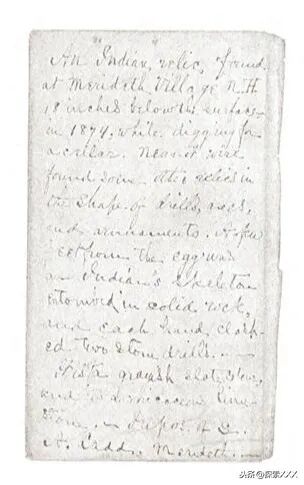 An Indian relic, found
at Meridith Village N.H
18 inches below the surface
in 1874, while digging for
a cellar. Near it were
found some other relics in
the shape of drills, axes,
and ornaments. A few
feet from the egg was
an Indian's skeleton
entomb'd in solid rock,
and each hand, clasp-
ed two stone drills. —
grayish
and lime
stone. —
Ladd Meredith —
头条 @探索XXX